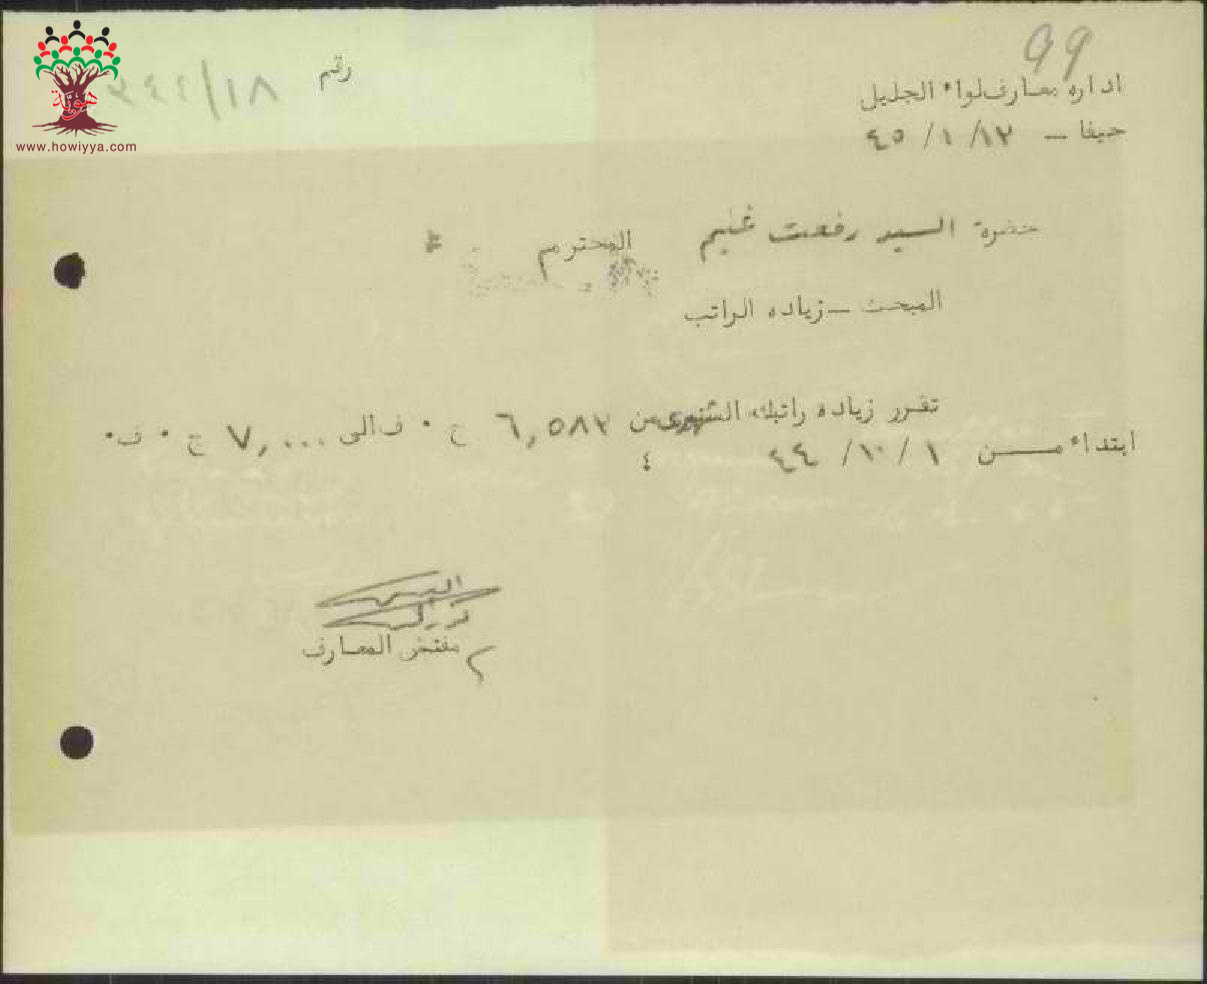 99
رقم ١٨/٣٤٤
اداره معارف لواء الجليل
حيفا ـ ١٢/ ١/ ٤٥
حضرة السيد رفعت غنيم المحترم
المبحث ـ زياده الراتب
تقرر زياده راتبك الشهرى من ٦,٥٨٣ ج ٠ ف الى ٧,٠٠٠ ج ٠ ف٠
ابتداء من ١/ ١٠/ ٤٤ ؛
مفتش المعارف
هوية
www.howiyya.com